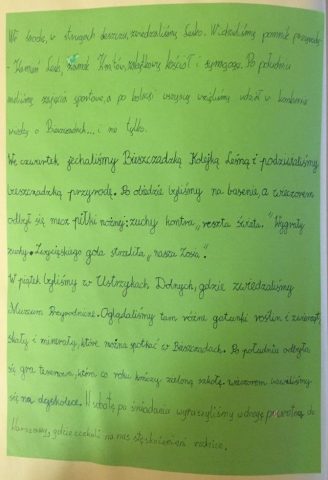 We środę, w strugach deszczu, zwiedzaliśmy Lesko. Widzieliśmy pomnik przyrody
- Kamień Leski, zamek Kmitów, zabytkowy kościół i synagogę. Po południu
mieliśmy zajęcia sportowe, a po kolacji wszyscy wzięliśmy udział w konkursie
wiedzy o Bieszczadach... i nie tylko.
We czwartek jechaliśmy Bieszczadzką Kolejką Leśną i podziwialiśmy
bieszczadzką przyrodę. Po obiedzie byliśmy na basenie, a wieczorem
odbył się mecz piłki nożnej: zuchy kontra „reszta świata." Wygrały
zuchy. Zwycięskiego gola strzeliła „nasza Zosia."
W piątek byliśmy w Ustrzykach Dolnych, gdzie zwiedzaliśmy
Muzeum Przyrodnicze. Oglądaliśmy tam różne gatunki roślin i zwierząt,
skały i minerały, które można spotkać w Bieszczadach. Po południu odbyła
się gra terenowa, która co roku kończy zieloną szkołę. wieczorem
się na dyskotece. W sobotę po śniadaniu wyruszyliśmy w drogę powrotną do
Warszawy, gdzie czekali na nas stęsknieni rodzice.